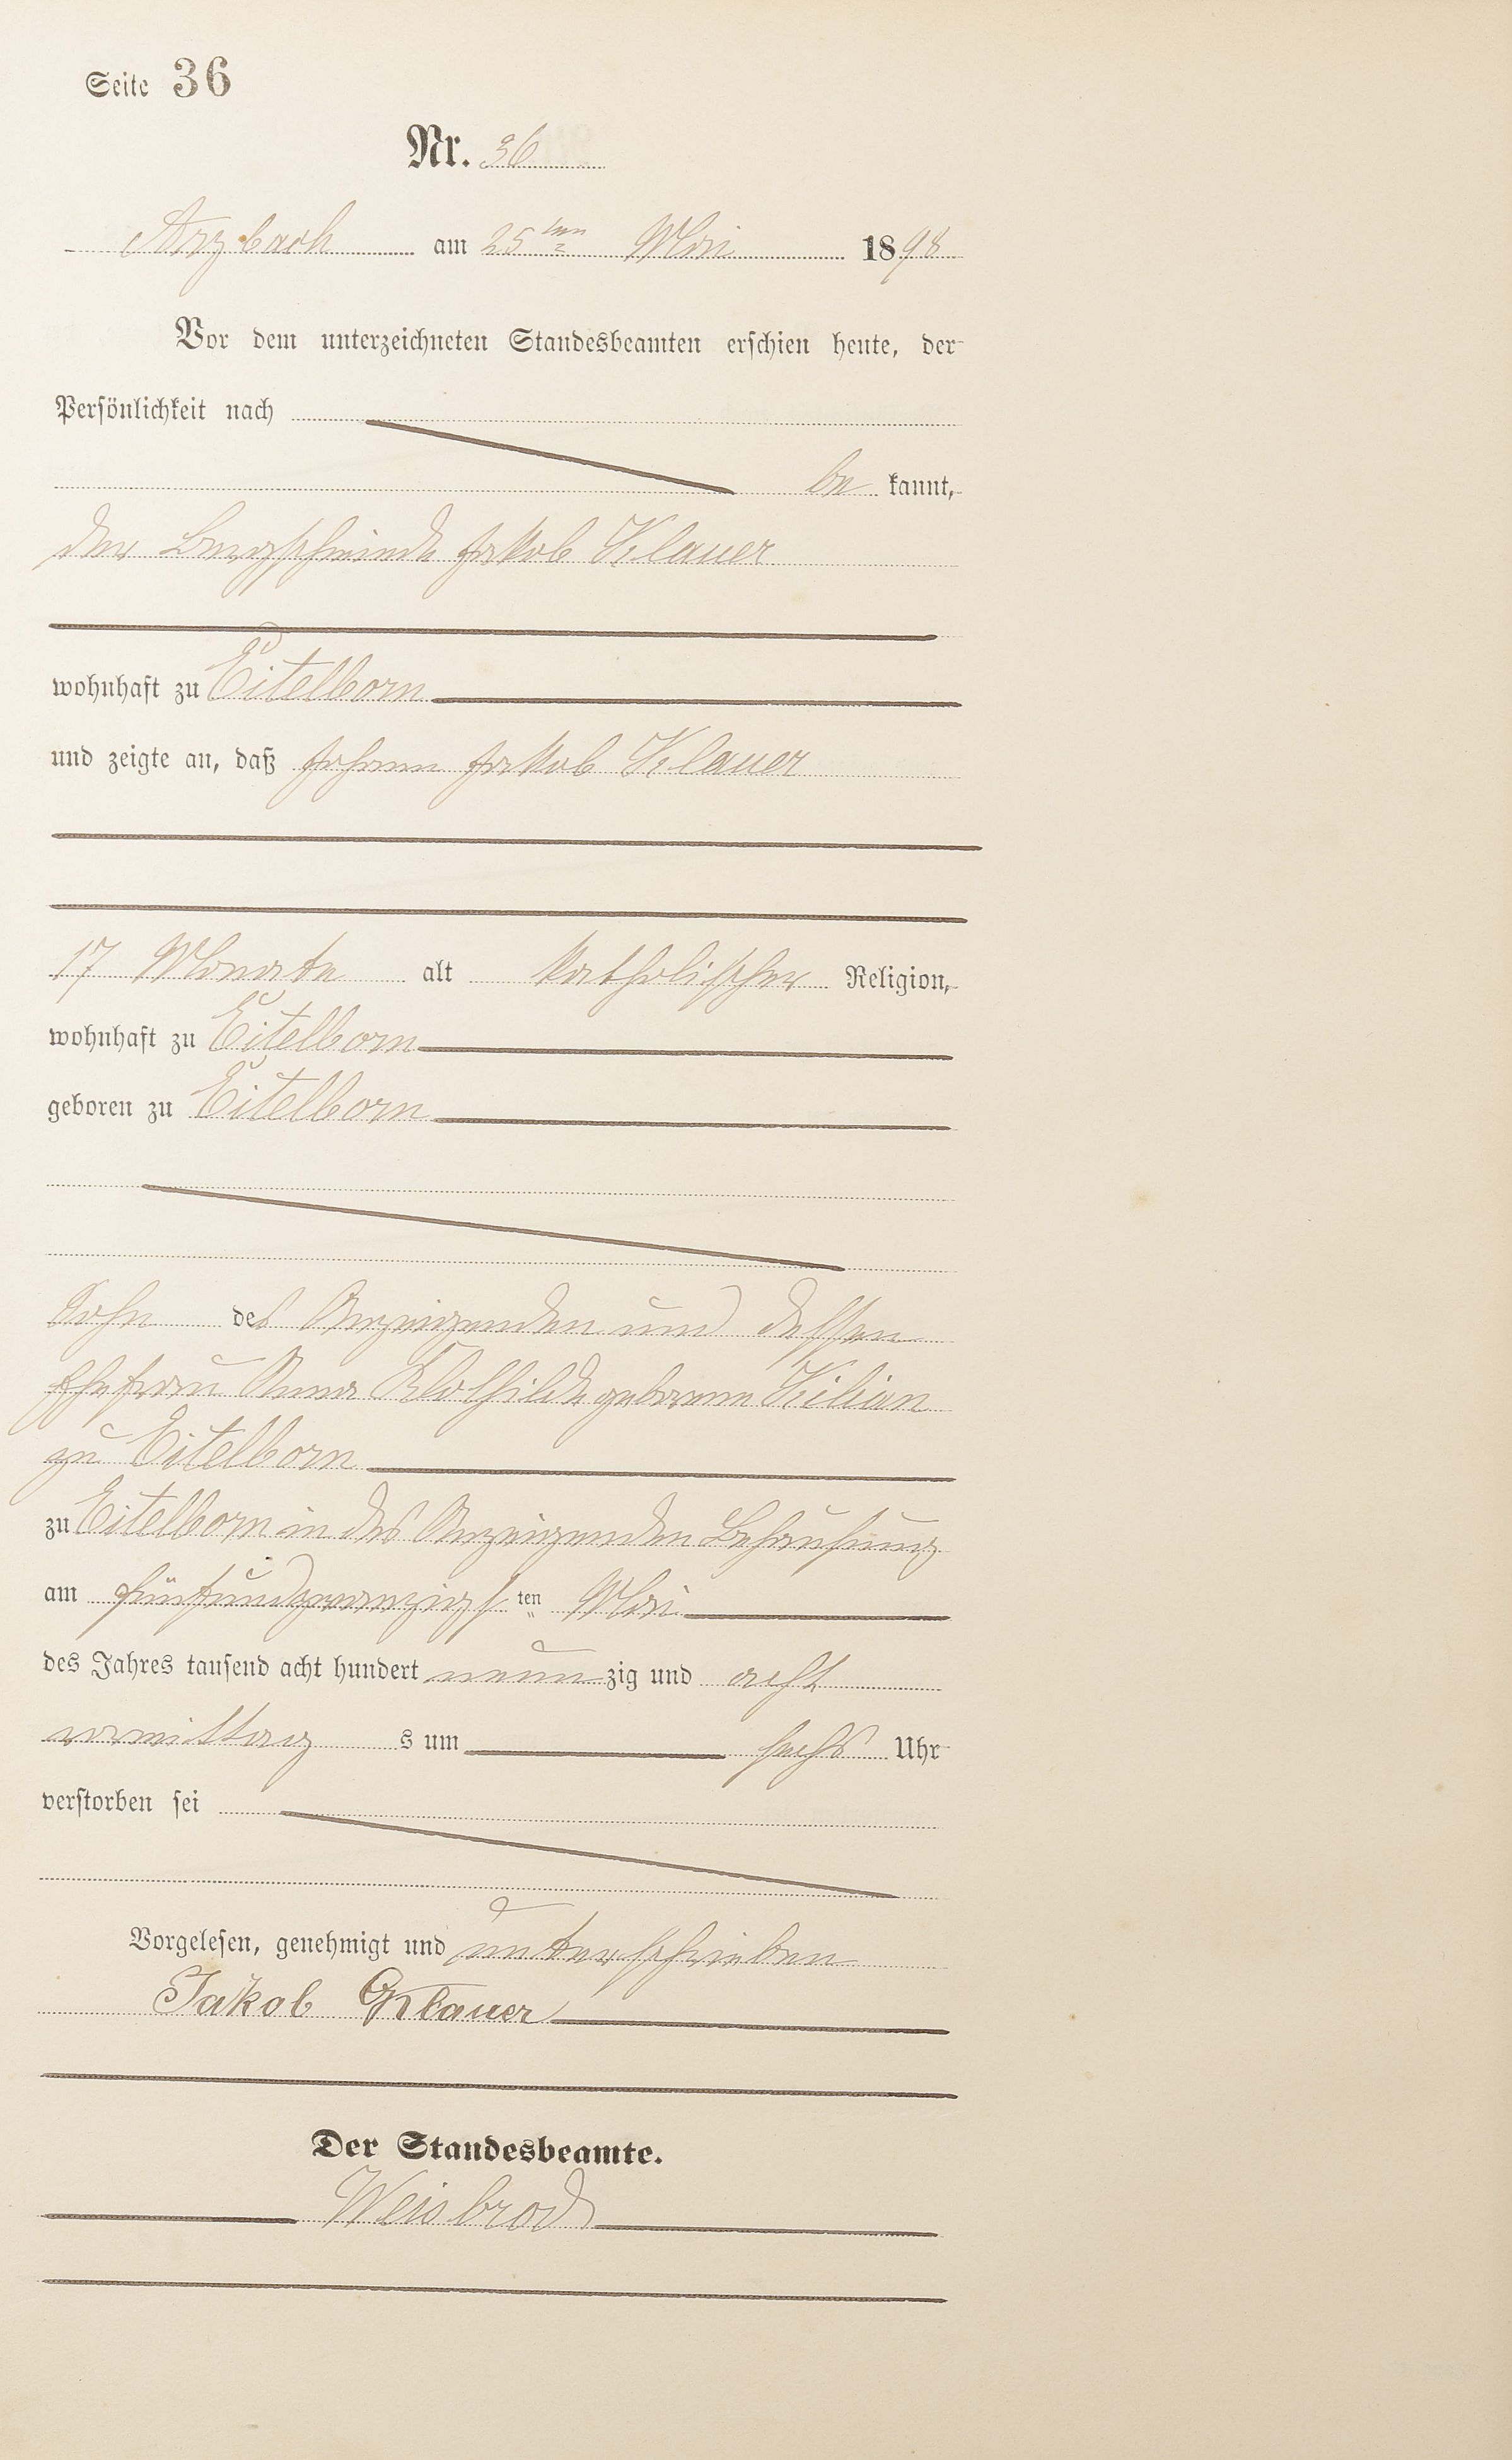 Seite 36
Nr. 36
Arzbach am 25ten Mai 1898
Vor dem unterzeichneten Standesbeamten erschien heute, der
Persönlichkeit nach
be kannt,
der Bergschmiede Jakob Klauer
wohnhaft zu Eitelborn
und zeigte an, daß Johann Jakob Klauer
17 Monate alt katholischer Religion,
wohnhaft zu Eitelborn
geboren zu Eitelborn
Sohn des Anzeigenden und dessen
Ehefrau Anna Klothilde geborene Kilian
zu Eitelborn
zu Eitelborn in des Anzeigenden Behausung
am fünfundzwanzigsten Mai
des Jahres tausend acht hundert neunzig und acht
vormittags um sechs Uhr
verstorben sei
Vorgelesen, genehmigt und unterschrieben
Jakob Klauer
Der Standesbeamte.
Weisbrod